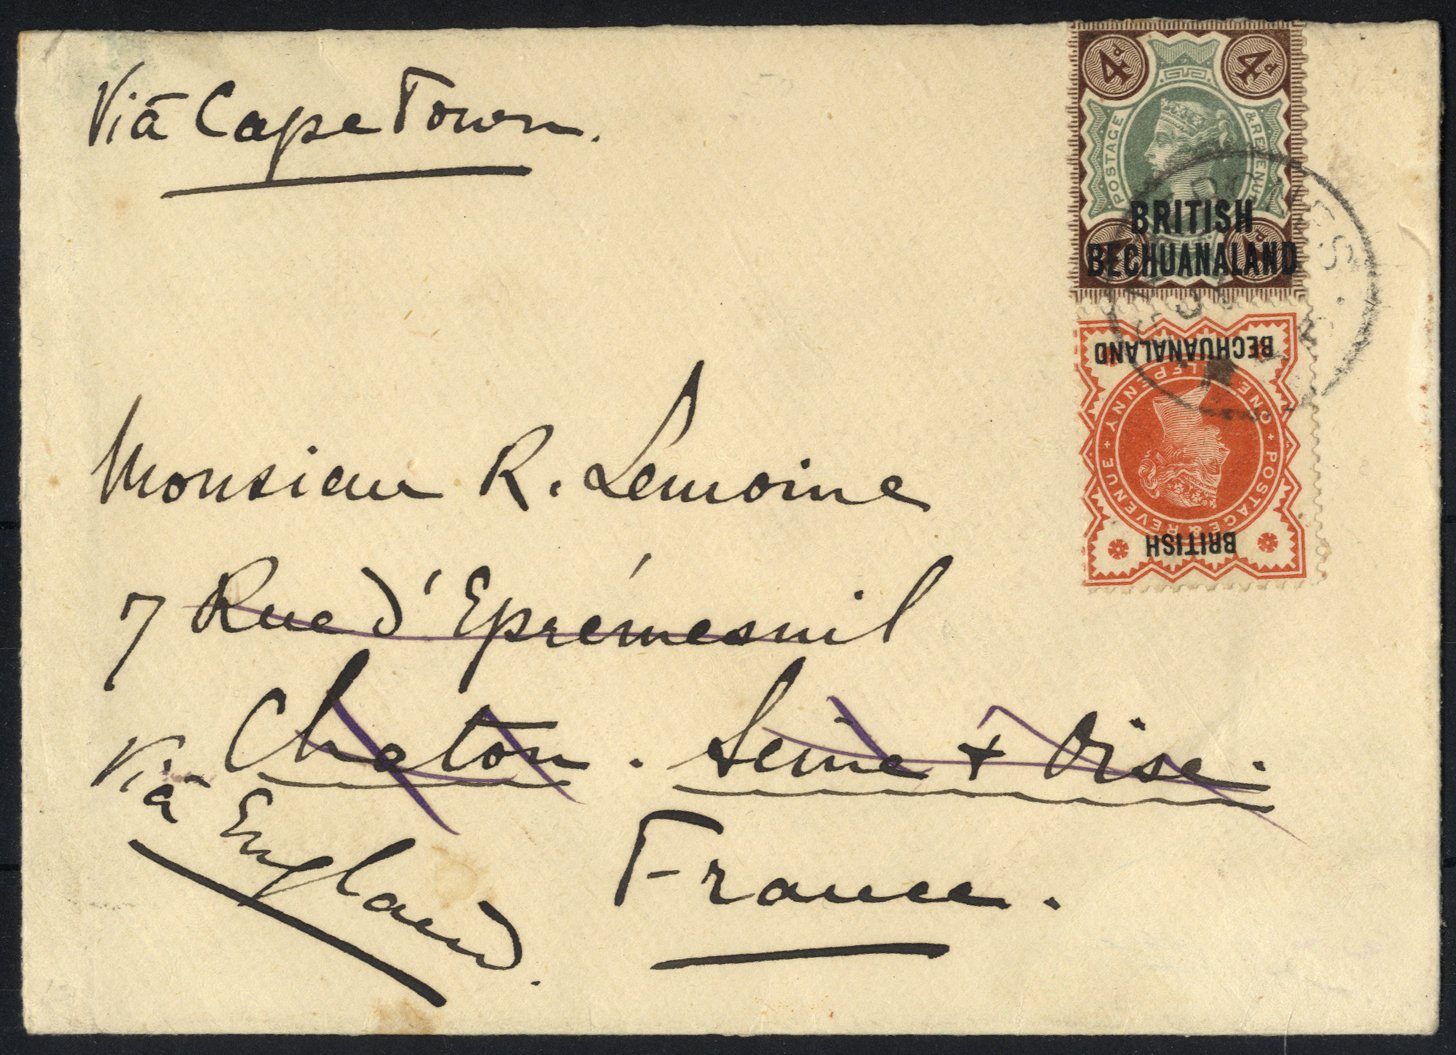 Viâ Cape Town.
4d 4d
POSTAGE & REVENUE
BRITISH
BECHUANALAND
BECHUANALAND
ONE HALFPENNY
POSTAGE & REVENUE
BRITISH
Monsieur R. Lemoine
7 Rue d'Eprémesnil
Chaton. Seine & Oise.
Viâ England.
France.